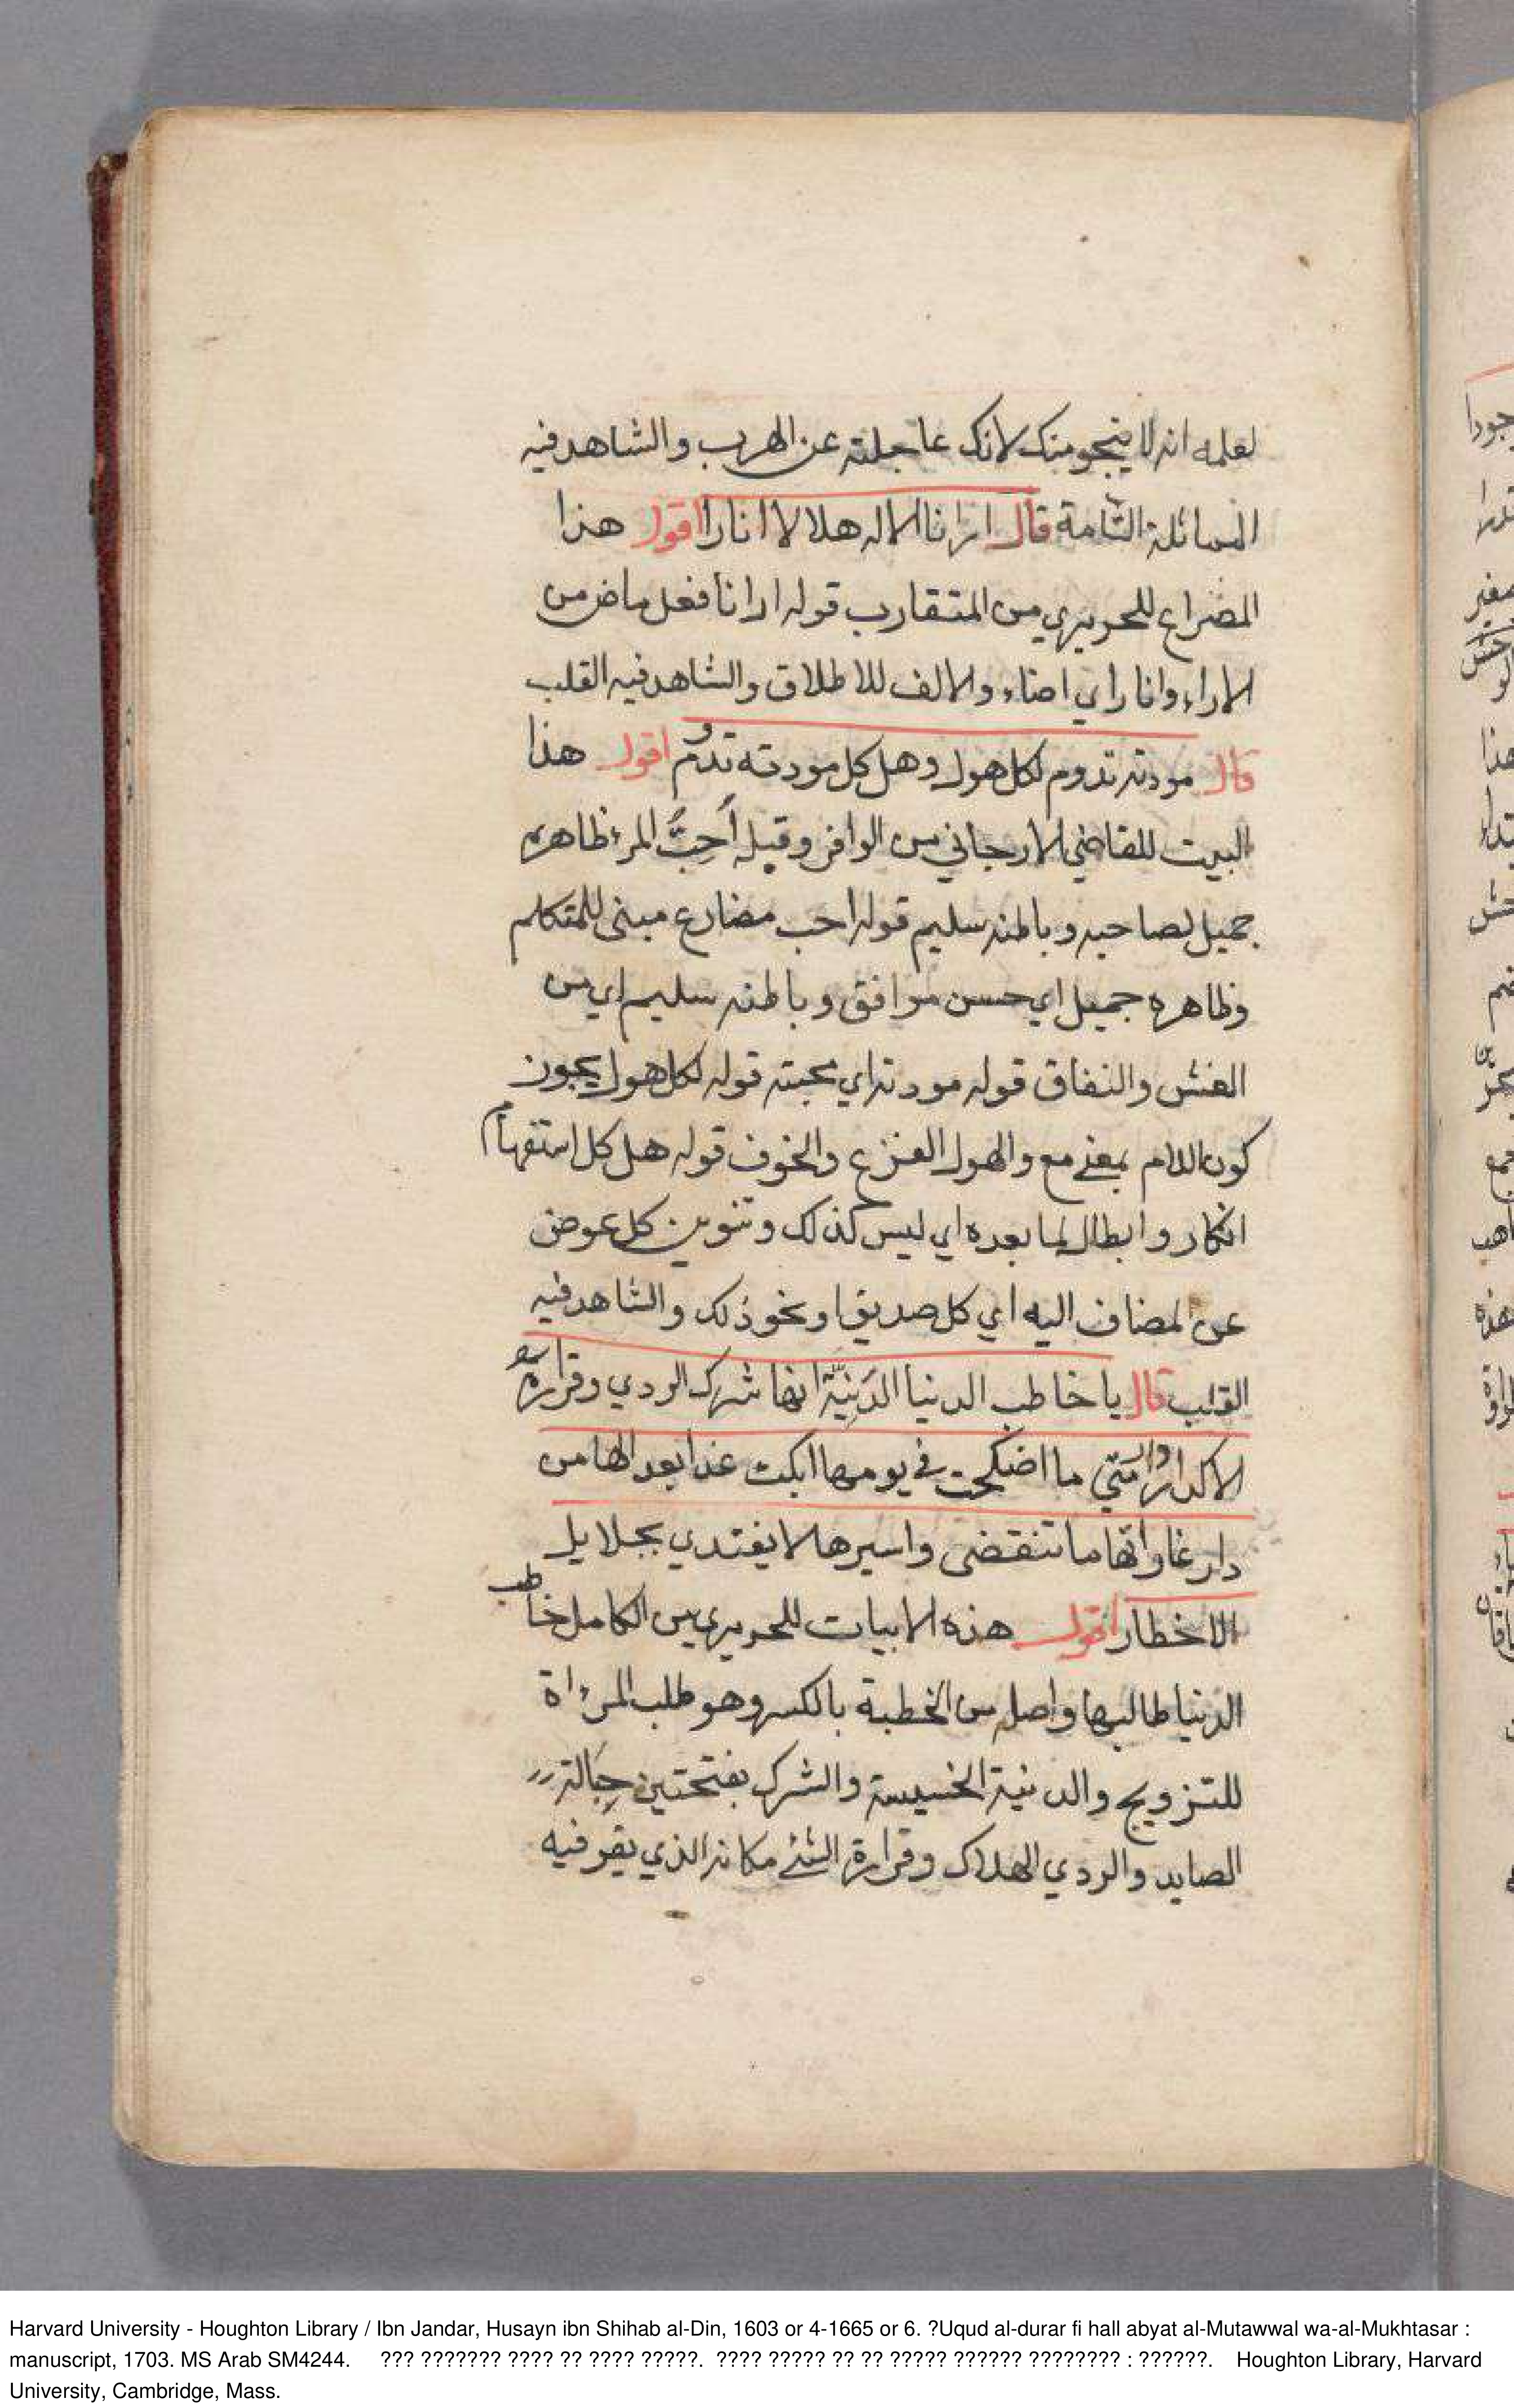 لعلمه انه لا ينجو منك لانك عاجلته عن الهرب والشاهد فيه
المماثلة التامة قال ارانا الاله هلالا انارا اقول هذا
المصراع للحريري من المتقارب قوله ارانا فعل ماض من
الاراء وانارا اي اضاء والالف للاطلاق والشاهد فيه القلب
قال مودته تدوم لكل هول وهل كل مودته تدوم اقول هذا
البيت للقاضي الارجاني من الوافر وقبله أُحِبُّ المرء ظاهره
جميل لصاحبه وباطنه سليم قوله احب مضارع مبنى للمتكلم
وظاهره جميل اي حسن موافق وباطنه سليم اي من
الغش والنفاق قوله مودته اي محبته قوله لكل هول يجوز
كون اللام بمعنى مع والهول الفزع والخوف قوله هل كل استفهام
انكار وابطال لما بعده اي ليس كذلك وتنوين كل عوض
عن المضاف اليه اي كل صديق او نحو ذلك والشاهد فيه
القلب قال يا خاطب الدنيا الدَنِيّة انها شرك الردي وقرارة
الاكدار دار متي ما اضحكت في يومها ابكت غدا بعدا لها من
دار غاراتها ما تنقضى واسيرها لا يفتدي بجلايل
الاخطار اقول هذه الابيات للحريري من الكامل خاطب
الدنيا طالبها واصله من الخطبة بالكسر وهو طلب المرءاة
للتزويج والدنية الخسيسة والشرك بفتحتين حِبَالة
الصايد والردي الهلاك وقرارة الشئ مكانه الذي يقر فيه
جودا
هذا
هذه
Harvard University - Houghton Library / Ibn Jandar, Husayn ibn Shihab al-Din, 1603 or 4-1665 or 6. ?Uqud al-durar fi hall abyat al-Mutawwal wa-al-Mukhtasar :
manuscript, 1703. MS Arab SM4244. ??? ??????? ???? ?? ???? ?????. ???? ????? ?? ?? ????? ?????? ???????? : ??????. Houghton Library, Harvard
University, Cambridge, Mass.